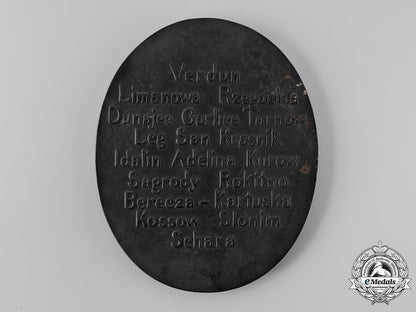 Verdun
Limanowa Rzegocina
Dunajec Gorlice Tarnow
Leg San Krasnik
Idalin Adelina Kurow
Sagrody Rokitno
Berecza - Kartuska
Kossow Slonim
Schara
eMedals